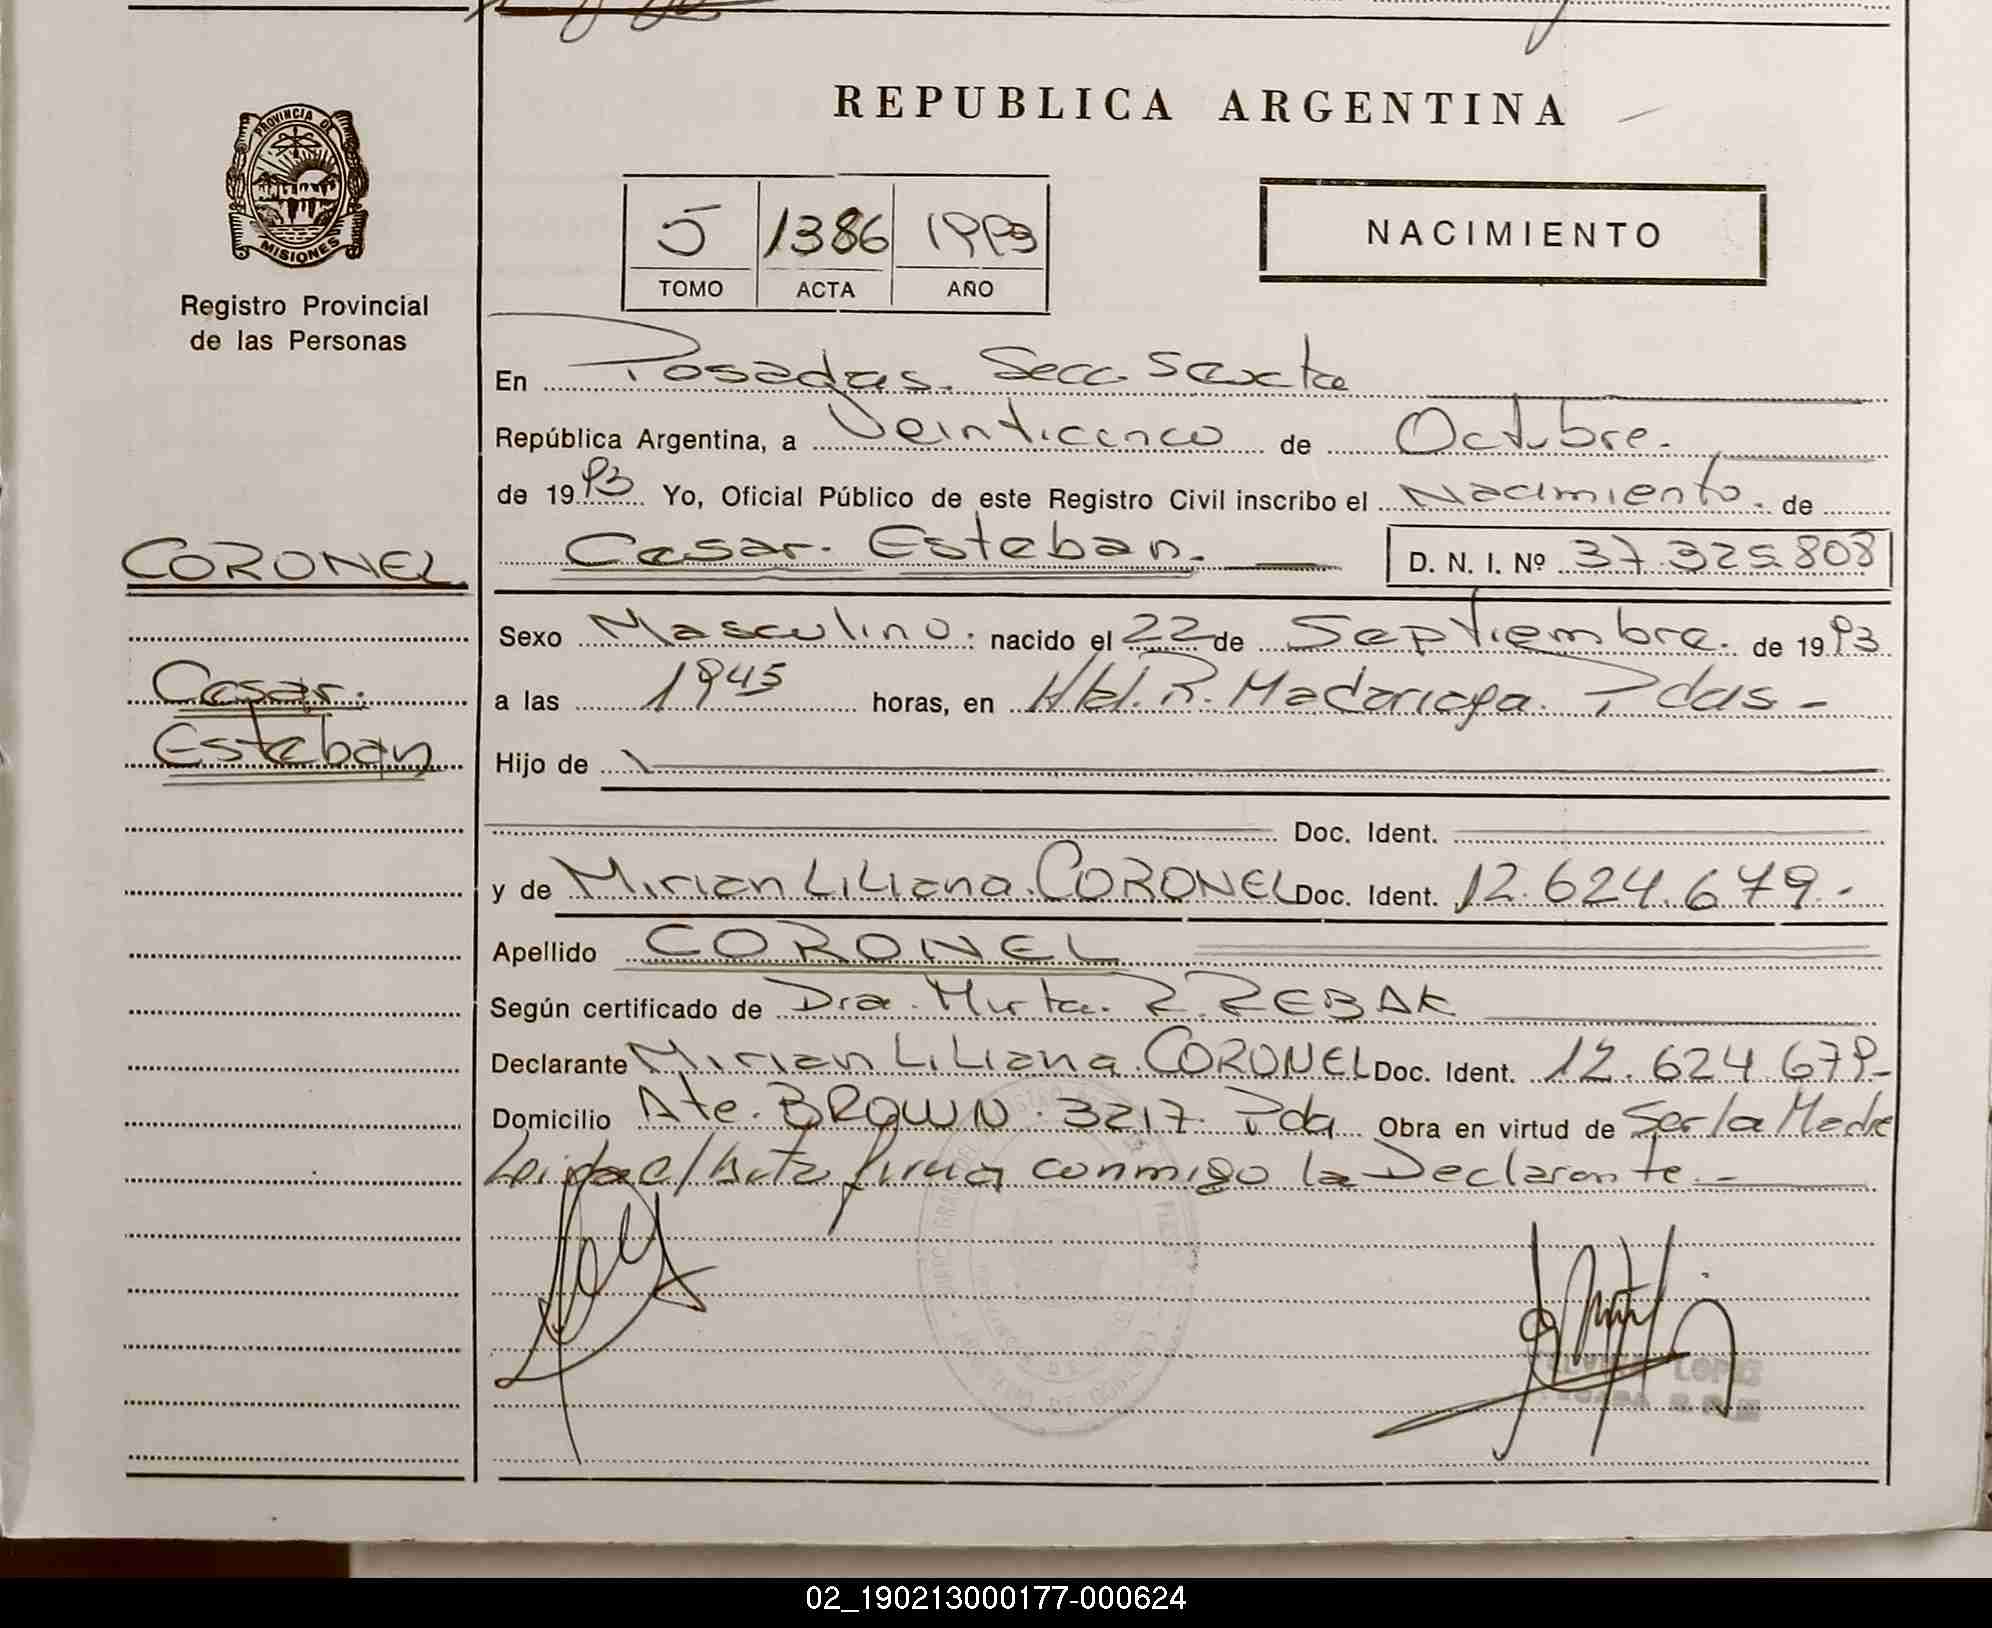 REPUBLICA ARGENTINA
PROVINCIA DE
MISIONES
Registro Provincial
de las Personas
5 1386 1993
TOMO ACTA AÑO
NACIMIENTO
En Posadas. Secc. Sexta
República Argentina, a Veinticinco de Octubre.
de 1993 Yo, Oficial Público de este Registro Civil inscribo el Nacimiento. de
Cesar. Esteban. D. N. I. Nº 37.325.808
CORONEL
Cesar.
Esteban
Sexo Masculino. nacido el 22 de Septiembre. de 1993
a las 1945 horas, en Htal. R. Madariaga. Pdas -
Hijo de
Doc. Ident.
y de Mirian Liliana. CORONEL Doc. Ident. 12.624.679.-
Apellido CORONEL
Según certificado de Dra. Mirta. R. REBAK
Declarante Mirian Liliana. CORONEL Doc. Ident. 12.624.679-
Domicilio Ate. BROWN. 3217. Pda Obra en virtud de Ser la Madre
Leida e/ Acta firma conmigo la Declarante.-
02_190213000177-000624